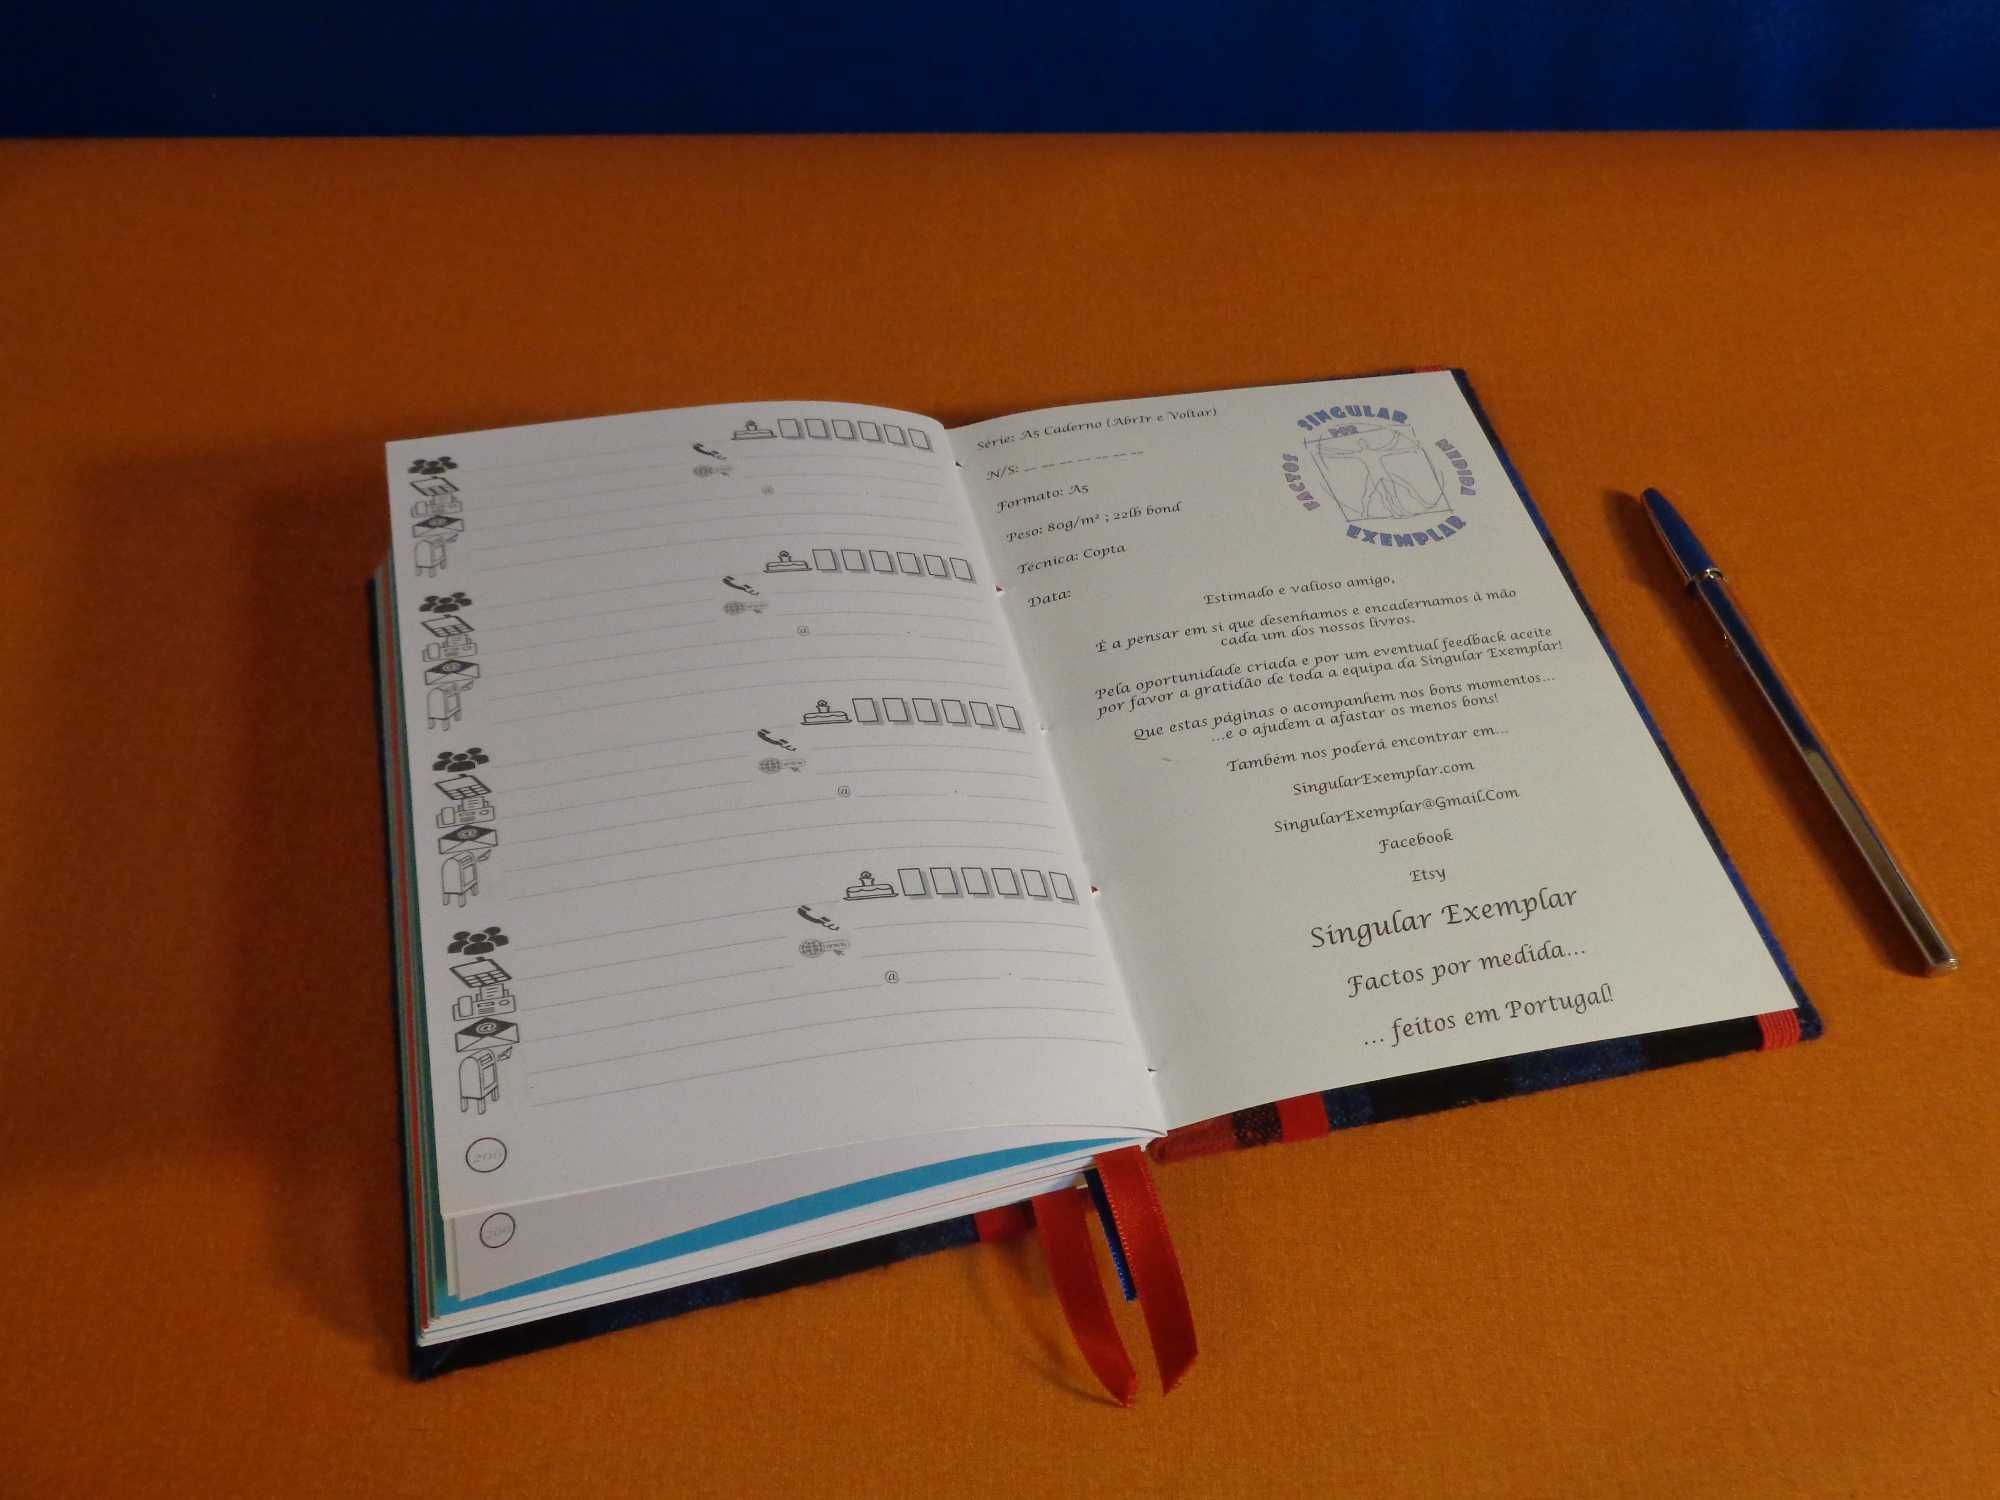 @
@
@
@
206
200
Série: A5 Caderno (AbrIr e Voltar)
N/S: __ __ __ __ __ __ __
Formato: A5
Peso: 80g/m² ; 22lb bond
Técnica: Copta
Data:
SINGULAR
POR
FACTOS
MEDIDA
EXEMPLAR
Estimado e valioso amigo,
É a pensar em si que desenhamos e encadernamos à mão
cada um dos nossos livros.
Pela oportunidade criada e por um eventual feedback aceite
por favor a gratidão de toda a equipa da Singular Exemplar!
Que estas páginas o acompanhem nos bons momentos...
...e o ajudem a afastar os menos bons!
Também nos poderá encontrar em...
SingularExemplar.com
SingularExemplar@Gmail.Com
Facebook
Etsy
Singular Exemplar
Factos por medida...
... feitos em Portugal!